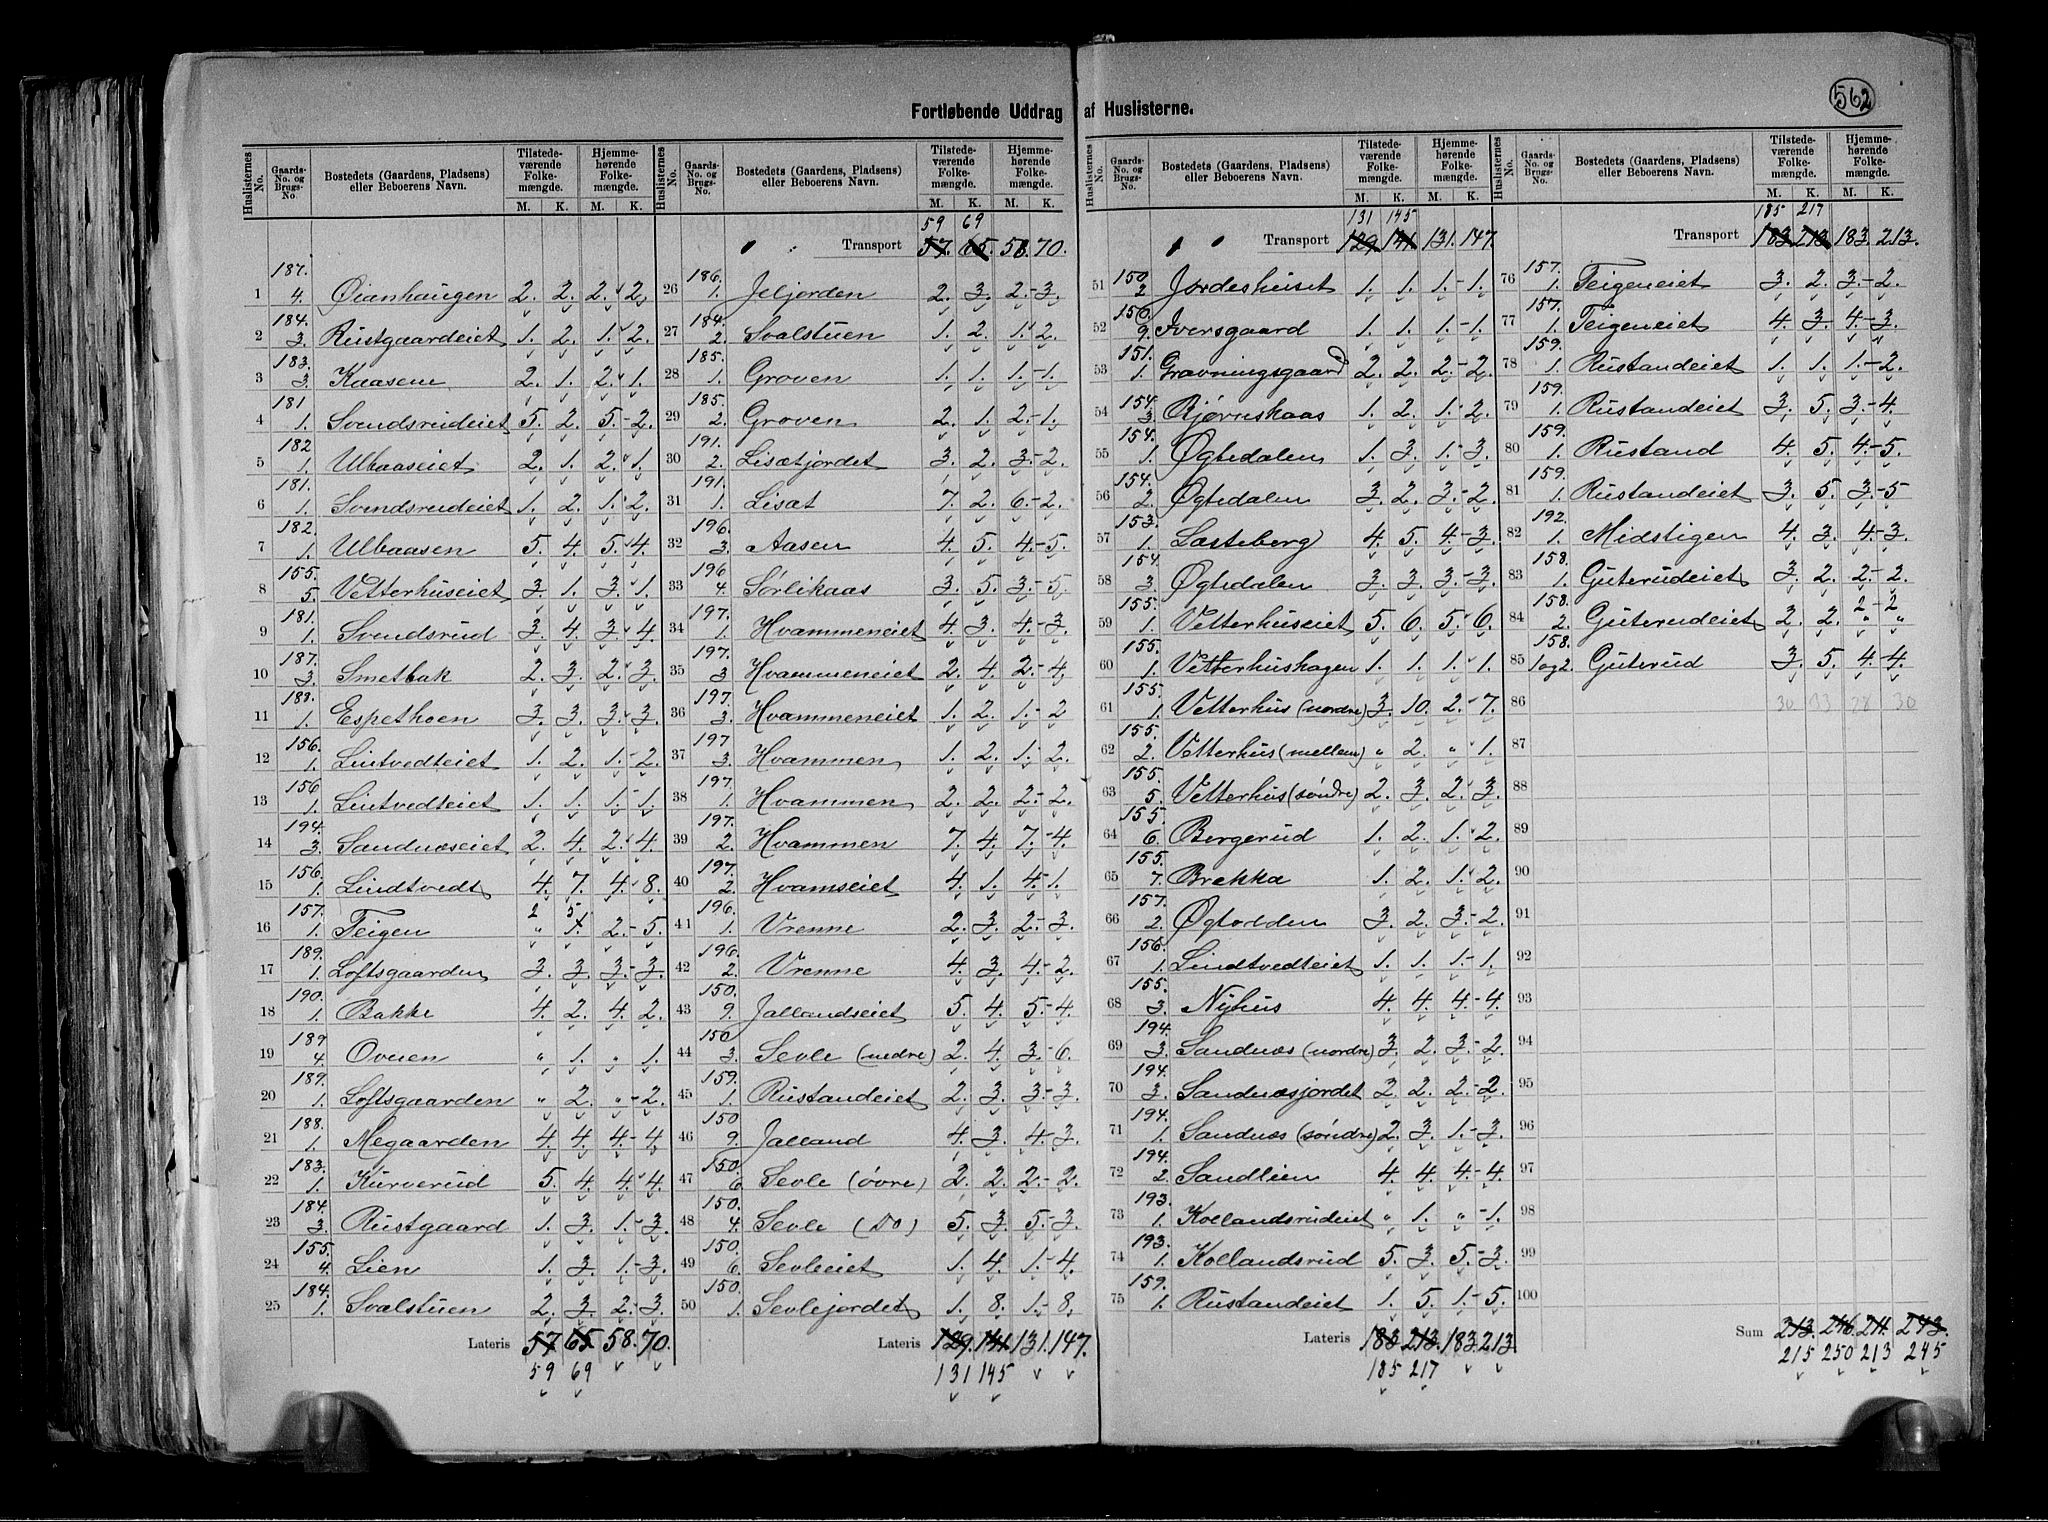 562
Fortløbende Uddrag af Huslisterne.
Huslisternes No. | Gaards-No. og Brugs-No. | Bostedets (Gaardens, Pladsens) eller Beboerens Navn. | Tilstedeværende Folkemængde. M. K. | Hjemmehørende Folkemængde. M. K.
1 187. 4. Øianhaugen 2. 2. 2. 2.
2 184. 3. Rustgaardeiet 1. 2. 1. 2.
3 183. 3. Kaasene 2. 1. 2. 1.
4 181 1. Svendsrudeiet 5. 2. 5. 2.
5 182 1. Ulbaaseiet 2. 1. 2. 1.
6 181. 1. Svendsrudeiet 1. 2. 1. 2.
7 182. 1. Ulbaasen 5. 4. 5. 4.
8 155. 5. Vetterhuseiet 3. 1. 3. 1.
9 181. 1. Svendsrud 3. 4. 3. 4.
10 187. 3. Smetbak 2. 3. 2. 3.
11 188. 1. Espethoen 3. 3. 3. 3.
12 156. 1. Lintvedteiet 1. 2. 1. 2.
13 156 1. Lintvedteiet 1. 1. 1. 1.
14 194. 3. Sandnæseiet 2. 4. 2. 4.
15 156. 1. Lindtvedt 4. 7. 4. 8.
16 157. 1. Teigen 2 5 2. 5.
17 189. 1. Loftsgaarden 3. 3. 3. 3.
18 190. 1. Bakke 4. 2. 4. 2.
19 189 4. Ovnen " 1. " 1.
20 189. 1. Loftsgaarden " 2. " 2.
21 188. 1. Megaarden 4. 4. 4. 4
22 183. 1. Kurverud 5. 4. 4. 4.
23 184. 3. Rustgaard 1. 3. 1. 3.
24 155. 4. Lien 1. 3. 1. 3.
25 184. 1. Svalstuen 2. 3. 2. 3.
Lateris 57 65 58. 70.
59 69
Huslisternes No. | Gaards-No. og Brugs-No. | Bostedets (Gaardens, Pladsens) eller Beboerens Navn. | Tilstedeværende Folkemængde. M. K. | Hjemmehørende Folkemængde. M. K.
59 69
Transport 57. 65. 58. 70.
26 186. 1. Jeljorden 2. 3. 2. 3.
27 184. 2. Svalstuen 1. 2. 1. 2.
28 185. 1. Groven 1. 1. 1. 1.
29 185. 2. Groven 2. 1. 2. 1.
30 191. 2. Lisætjordet 3. 2. 3. 2.
31 191. 1. Lisæt 7. 2. 6. 2.
32 196. 3. Aasen 4. 5. 4. 5.
33 196 4. Sørlikaas 3. 5. 3. 5.
34 197. 1. Hvammeneiet 4. 3. 4. 3.
35 197. 3 Hvammeneiet 2. 4. 2. 4.
36 197. 3. Hvammeneiet 1. 2. 1. 2
37 197 3. Hvammen 1. 2. 1. 2.
38 197. 1. Hvammen 2. 2. 2. 2.
39 197. 2. Hvammen 7. 4. 7. 4.
40 197. 2. Hvamseiet 4. 1. 4. 1.
41 196. 1. Vrenne 2. 3. 2. 3.
42 196. 2. Vrenne 4. 3. 4. 2.
43 150. 9. Jallandseiet 5. 4. 5. 4.
44 150 3. Sevle (nedre) 2. 4. 3. 6.
45 159. 1. Rustandeiet 2. 3. 3. 3.
46 150 9. Jalland 4. 3. 4. 3.
47 150. 6. Sevle (øvre) 2. 2. 2. 2.
48 150. 4. Sevle (Do) 5. 3. 5. 3.
49 150. 6. Sevleeiet 1. 4. 1. 4.
50 150. 1. Sevlejordet 1. 8. 1. 8.
Lateris 129. 141. 131. 147.
131 145
Huslisternes No. | Gaards-No. og Brugs-No. | Bostedets (Gaardens, Pladsens) eller Beboerens Navn. | Tilstedeværende Folkemængde. M. K. | Hjemmehørende Folkemængde. M. K.
131 145
Transport 129. 141. 131. 147.
51 150 2. Jordeshuset 1. 1. 1. 1.
52 150. 9. Iversgaard 1. 1. 1. 1
53 151. 1. Gravningsgaard 2. 2. 2. 2.
54 154. 3. Bjørneskaas 1. 2. 1. 2.
55 154. 1. Øgtedalen 1. 3. 1. 3.
56 154. 2. Øgtedalen 3. 2. 3. 2.
57 153. 1. Lasteberg 4. 5. 4. 3.
58 154. 3. Øgtedalen 3. 3. 3. 3.
59 155. 1. Vetterhuseiet 5. 6. 5. 6.
60 155. 1. Vetterhushagen 1. 1. 1. 1.
61 155. 1. Vetterhus (nordre) 3. 10. 2. 7.
62 155. 2. Vetterhus (mellem) " 2. " 1.
63 155. 5. Vetterhus (søndre) 2. 3. 2. 3.
64 155. 6. Bergerud 1. 2. 1. 2.
65 155. 7. Brekka 1. 2. 1. 2.
66 157. 2. Øgtvedden 3. 2. 3. 2.
67 156. 1. Lindtvedteiet 1. 1. 1. 1.
68 155. 3. Nyhus 4. 4. 4. 4.
69 194. 3. Sandnæs (nordre) 3. 2. 3. 2.
70 194. 3. Sandnæsjordet 2. 2. 2. 2.
71 194. 1. Sandnæs (søndre) 2. 3. 1. 3.
72 194. 2. Sandlien 4. 4. 4. 4.
73 193. 1. Kollandsrudeiet " 1. " 1.
74 193. 1. Kollandsrud 5. 3. 5. 3.
75 159. 1. Rustandeiet 1. 5. 1. 5.
Lateris 183 213. 183. 213
185 217
Huslisternes No. | Gaards-No. og Brugs-No. | Bostedets (Gaardens, Pladsens) eller Beboerens Navn. | Tilstedeværende Folkemængde. M. K. | Hjemmehørende Folkemængde. M. K.
185 217
Transport 183 213 183. 213.
76 157. 1. Teigeneiet 3. 2. 3. 2.
77 157. 1. Teigeneiet 4. 3. 4. 3.
78 159. 1. Rustandeiet 1. 1. 1. 2.
79 159. 1. Rustandeiet 3. 5. 3. 4.
80 159. 1. Rustand 4. 5. 4. 5.
81 159. 1. Rustandeiet 3. 5. 3. 5
82 192. 1. Midstigen 4. 3. 4. 3.
83 158. 1. Guterudeiet 3. 2. 2. 2.
84 158. 2. Guterudeiet 2. 2. 2 2
85 158. 1 og 2. Guterud 3. 5. 4. 4.
86 30 33 28 30
87
88
89
90
91
92
93
94
95
96
97
98
99
100
Sum 213. 246. 211. 243.
215 250 213 245